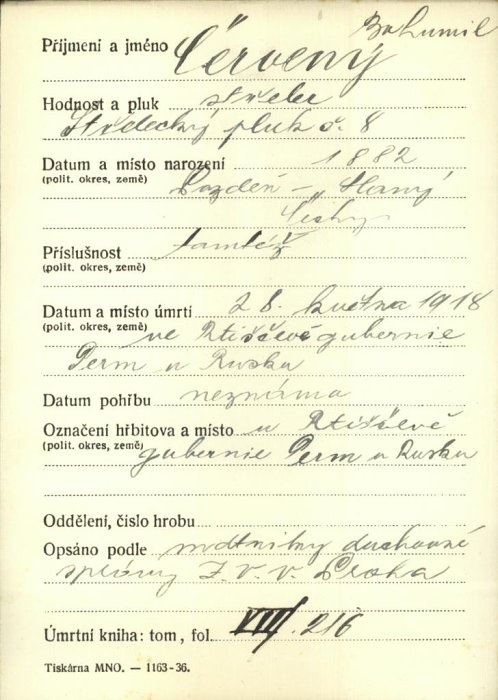 Bohumil
Příjmení a jméno Červený
Hodnost a pluk střelec
Střelecký pluk č. 8
Datum a místo narození 1882
(polit. okres, země) Lozdeň - Slaný
Čechy
Příslušnost tamtéž
(polit. okres, země)
Datum a místo úmrtí 28. května 1918
(polit. okres, země) ve Rtiščevě gubernie
Perm u Ruska
Datum pohřbu neznámo
Označení hřbitova a místo u Rtiščevě
(polit. okres, země) gubernie Perm u Ruska
Oddělení, číslo hrobu
Opsáno podle duchovné
správy Z. V. V. Praha
Úmrtní kniha: tom, fol. VIII. 216
Tiskárna MNO. — 1163-36.